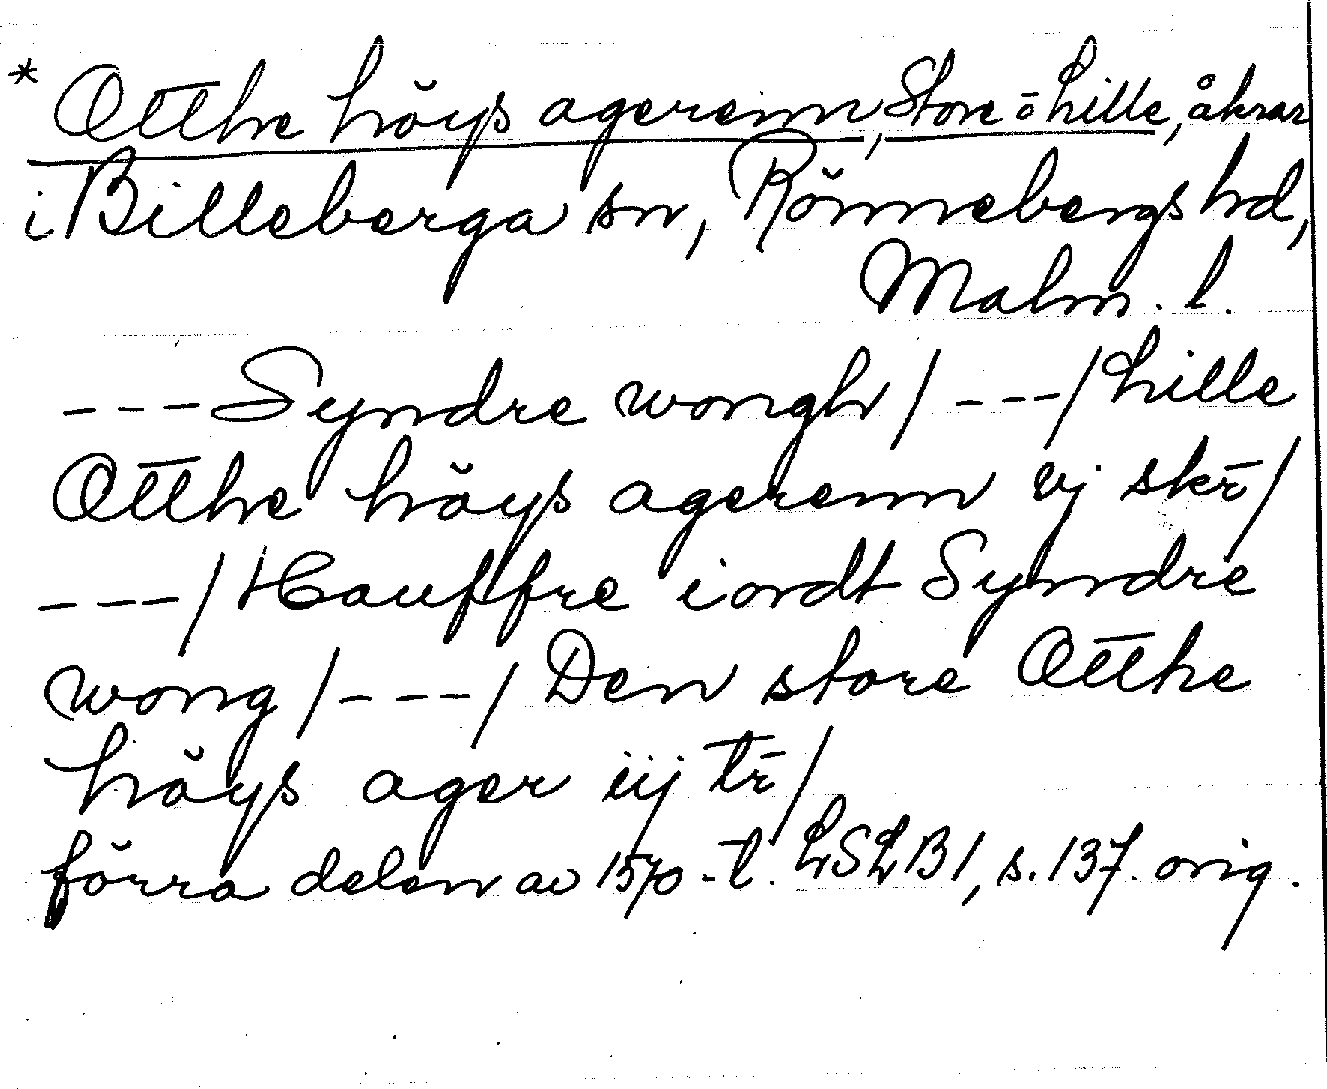 * Otthe höys agerenn, Store o Lille, åkrar
i Billeberga sn, Rönnebergs hd,
Malm. l.
---Syndre wongh/ ---/ Lille
Otthe höys agerenn vj skr/
---/ Hauffre iordt Syndre
wong/---/ Den store Otthe
höys ager iij tr/
förra delen av 1570-t. LSLB1, s. 137. orig.